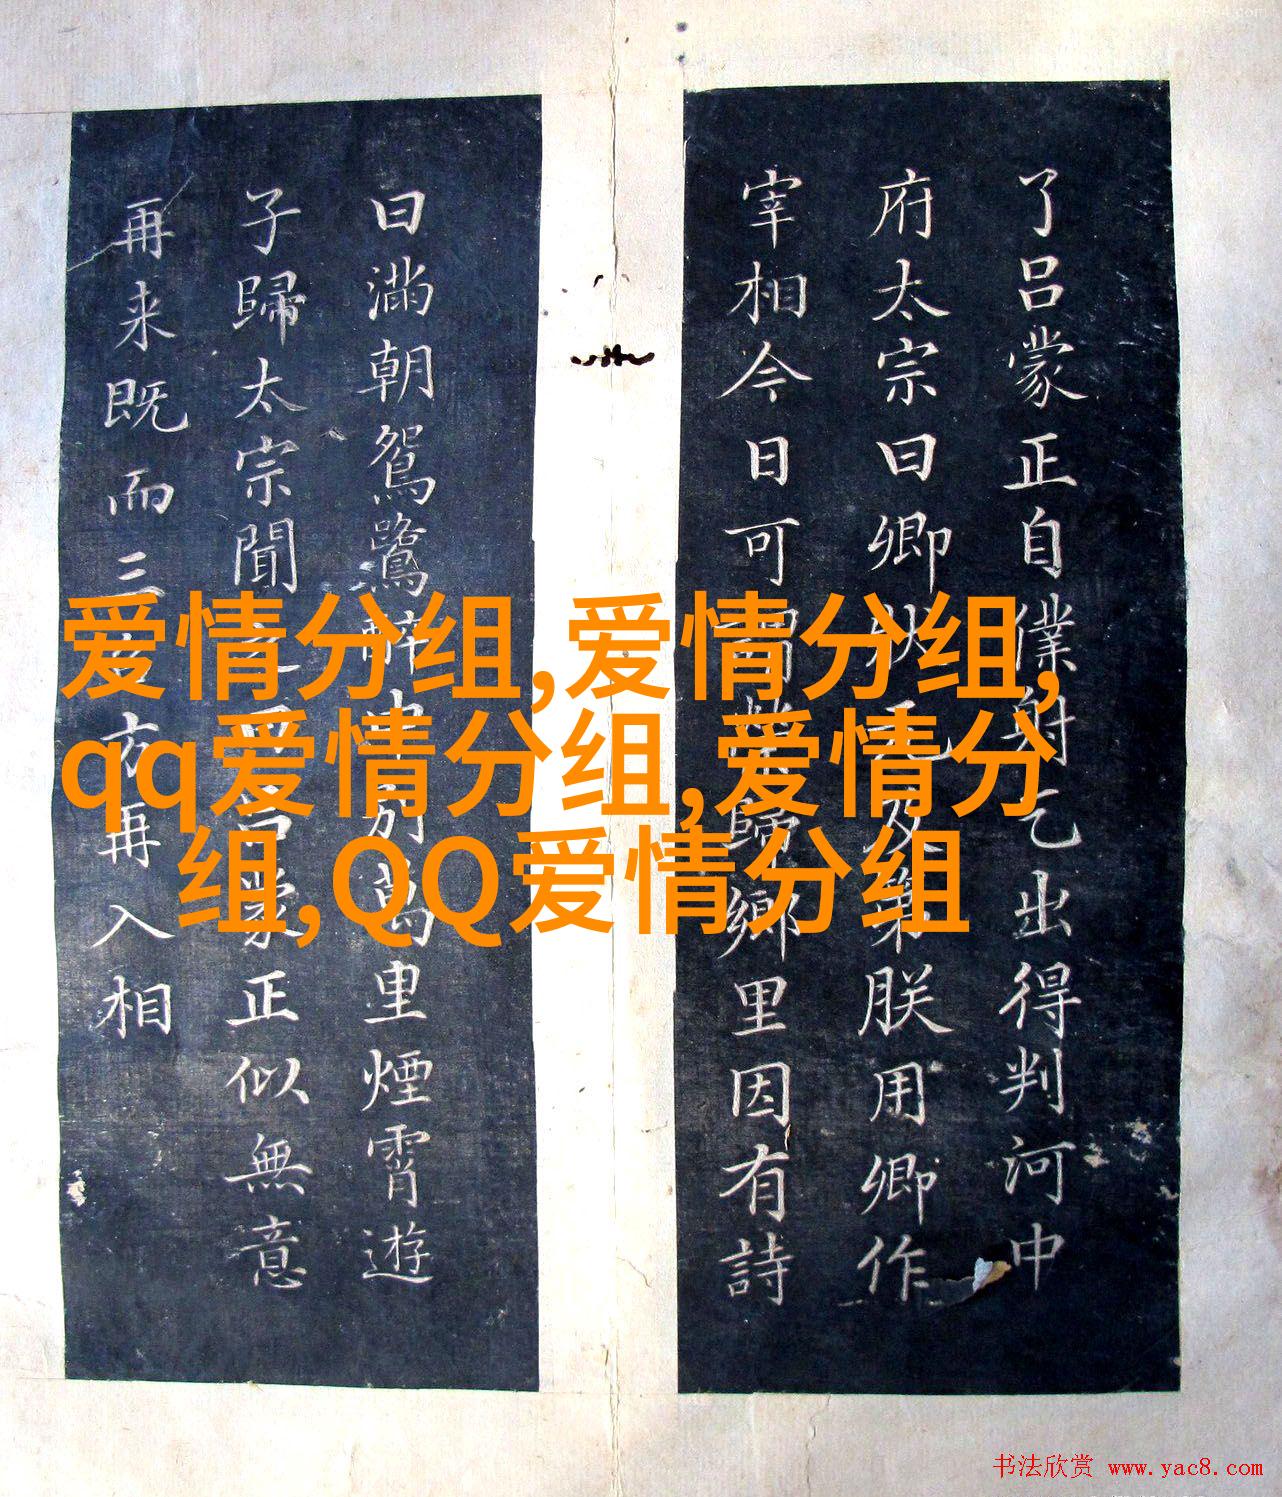 了吕蒙正自僕射乞出得判河中
府太宗曰卿状元及第朕用卿作
宰相今日可謂榮歸鄉里因有詩
曰滿朝鴛鷺醉中別萬里煙霄遊
子歸太宗聞之曰吕蒙正似無意
再来既而三方再入相
爱情分组,爱情分组,
qq爱情分组,爱情分
组,QQ爱情分组
书法欣赏 www.yac8.com